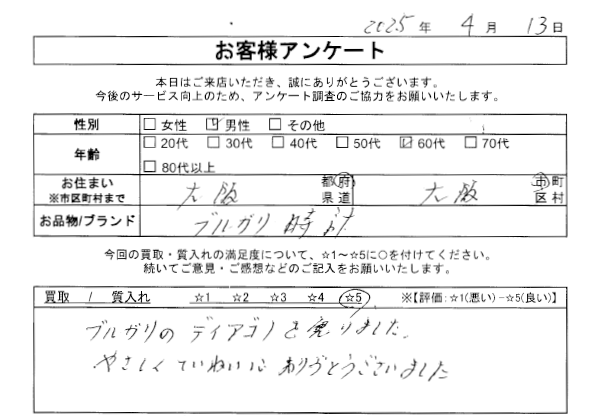 2025年 4月 13日
お客様アンケート
本日はご来店いただき、誠にありがとうございます。
今後のサービス向上のため、アンケート調査のご協力をお願いいたします。
性別 □女性 ☑男性 □その他
年齢 □20代 □30代 □40代 □50代 ☑60代 □70代
□80代以上
お住まい ※市区町村まで 大阪 都府県道 大阪 市町区村
お品物/ブランド ブルガリ 時計
今回の買取・質入れの満足度について、☆1～☆5に○を付けてください。
続いてご意見・ご感想などのご記入をお願いいたします。
買取 / 質入れ ☆1 ☆2 ☆3 ☆4 ☆5 ※【評価:☆1(悪い)－☆5(良い)】
ブルガリの ディアゴノを売りました。
やさしく ていねいに ありがとうございました